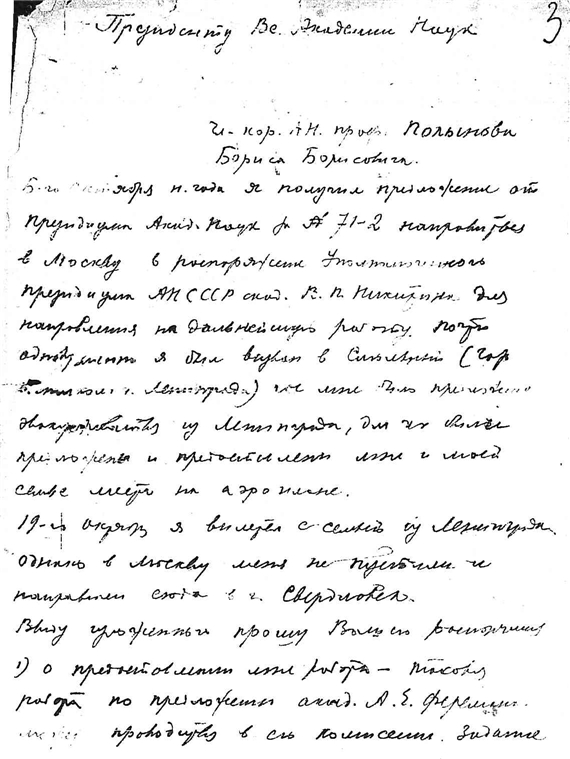 3
Президенту Вс. Академии Наук
Чл-кор. АН. проф. Полынова
Бориса Борисовича.
октября н. года я получил предложение от
президиума Акад. Наук за № 71-2 направиться
в Москву в распоряжение Уполномоченного
президиума АН СССР акад. В. П. Никитина для
направления на дальнейшую работу. Почти
я был вызван в Смольный (гор
г. Ленинграда) где мне было предложено
эвакуироваться из Ленинграда, для чего были
предложены и предоставлены мне и моей
семье места на аэроплане.
19-го октября я вылетел с семьей из Ленинграда.
однако в Москву меня не пустили и
направили сюда в г. Свердловск.
Ввиду изложенного прошу Вашего распоряжения
1) о предоставлении мне работы – таковая
работа по предложению акад. А. Е. Ферсмана
может проводиться в его комиссии. Задание